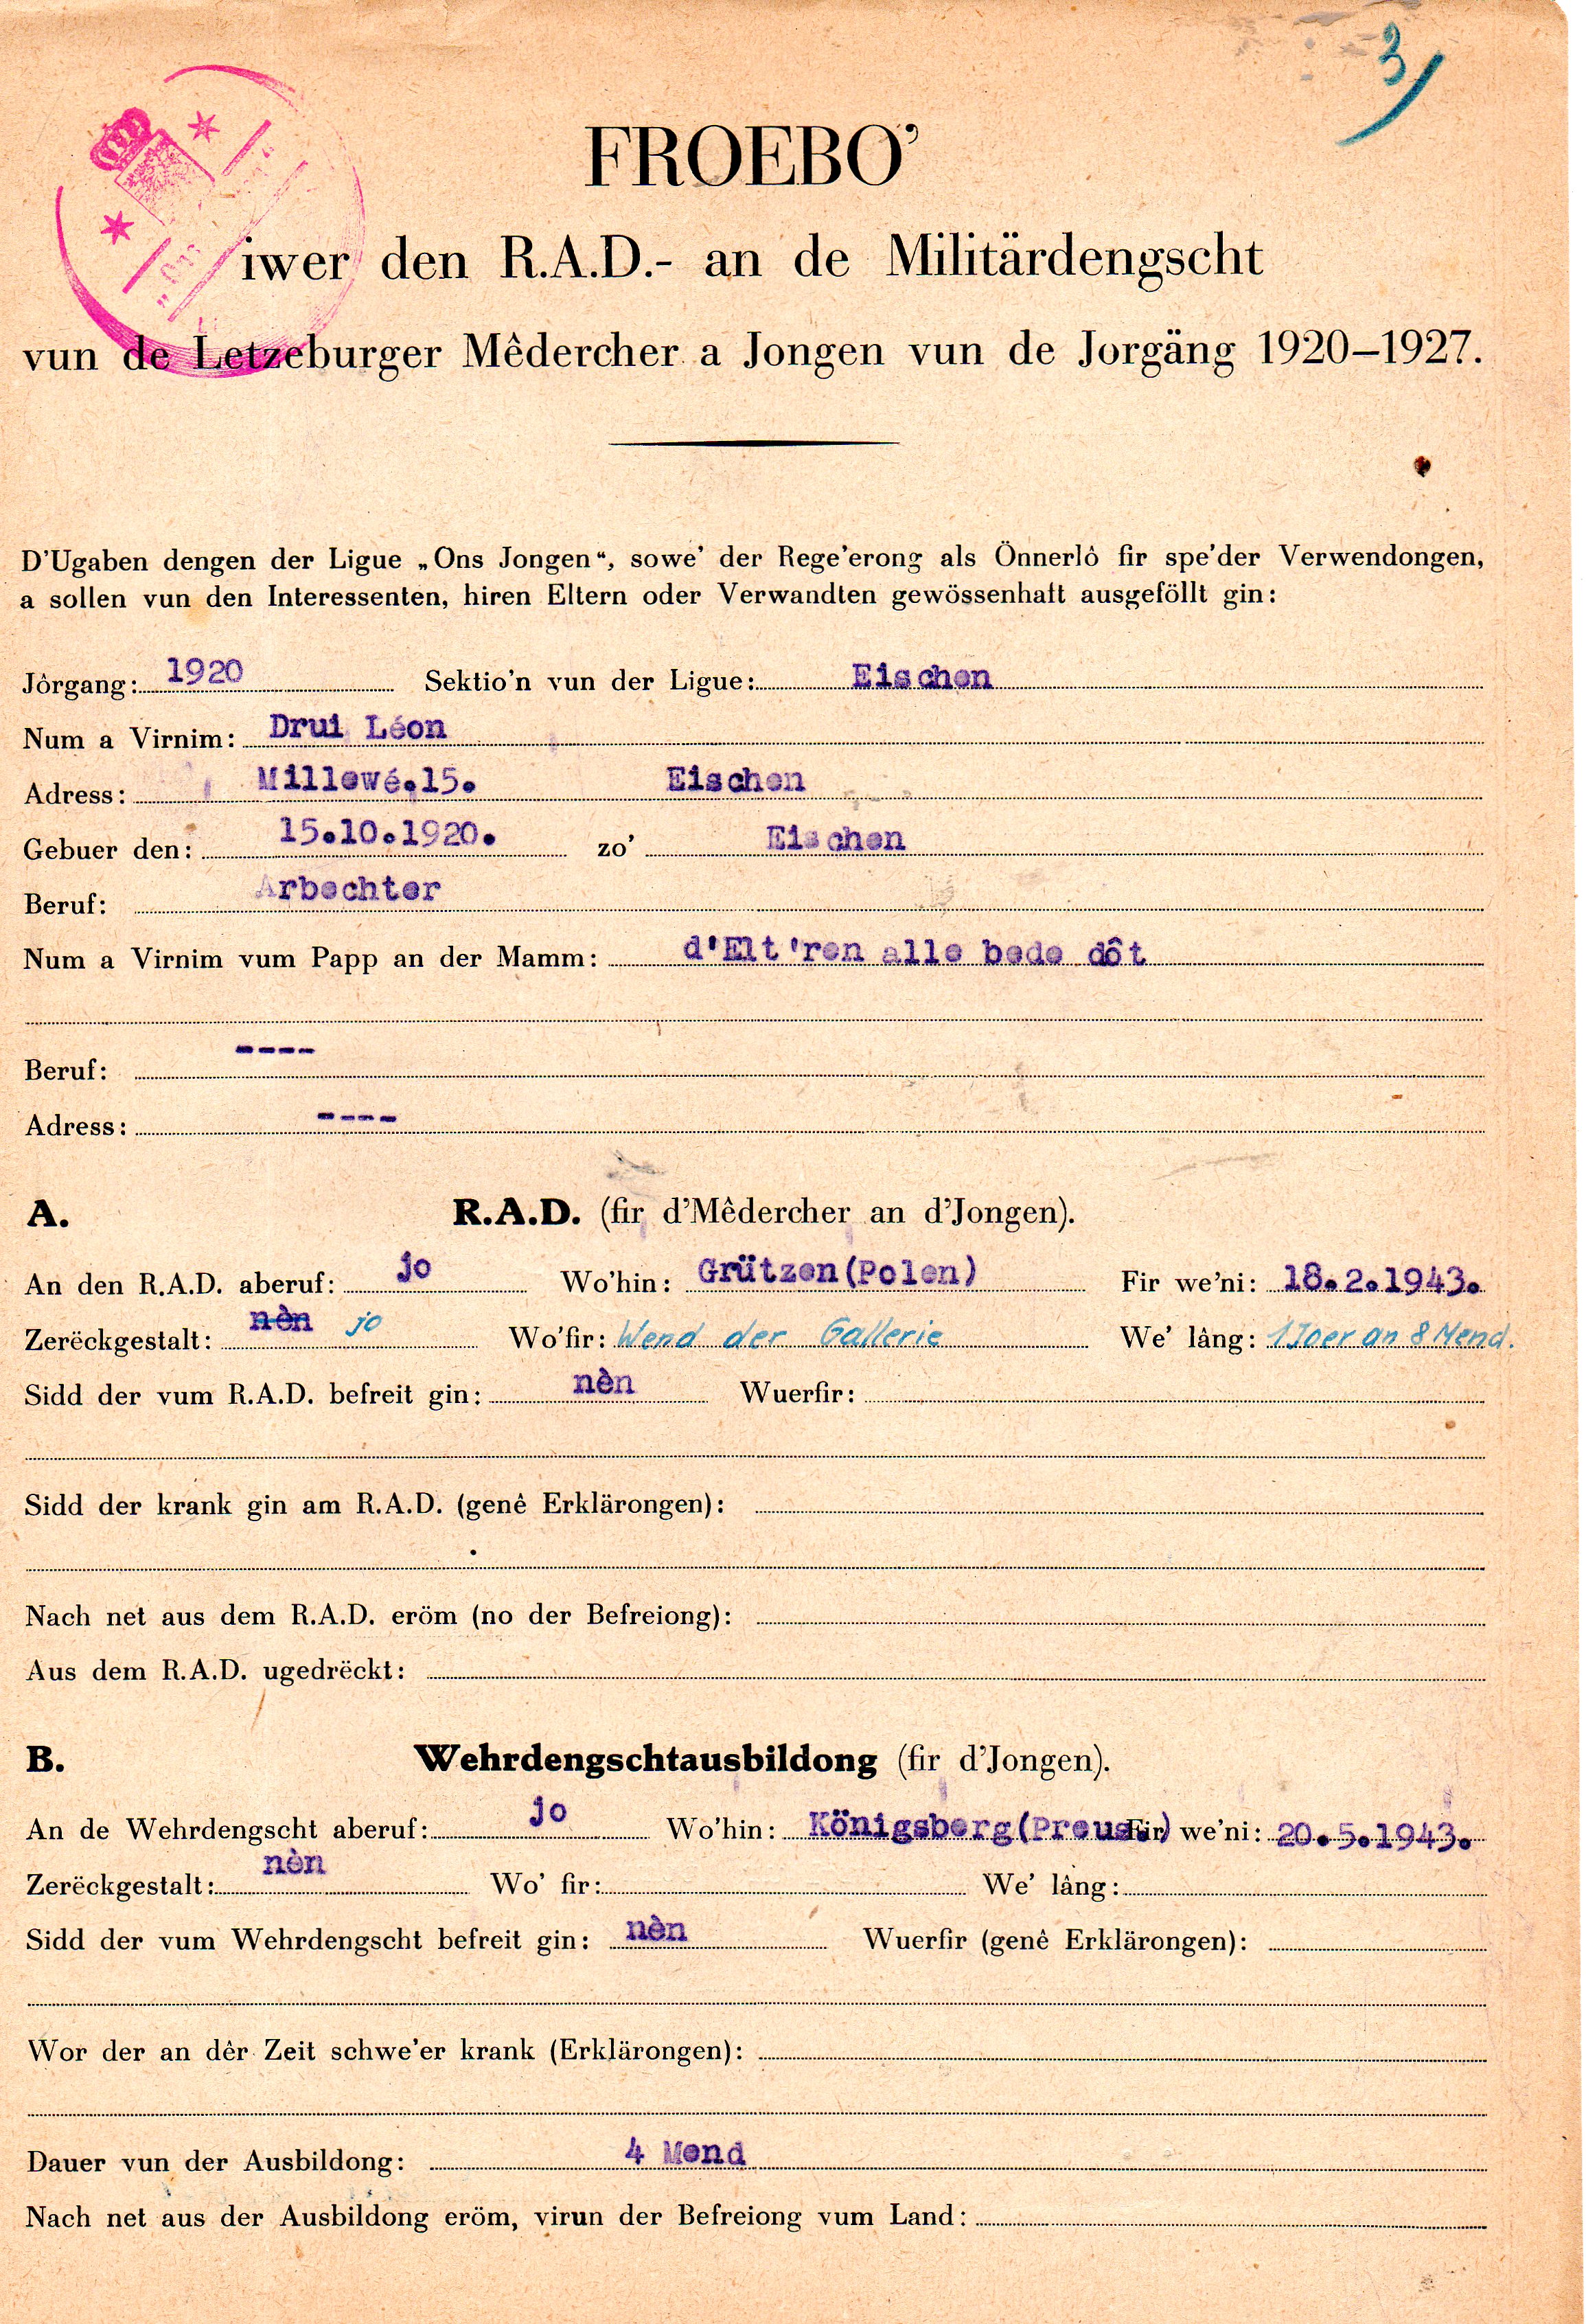 3
FROEBO'
iwer den R.A.D.- an de Militärdengscht
vun de Letzeburger Mêdercher a Jongen vun de Jorgäng 1920–1927.
D'Ugaben dengen der Ligue „Ons Jongen“, sowe' der Rege'erong als Önnerlô fir spe'der Verwendongen,
a sollen vun den Interessenten, hiren Eltern oder Verwandten gewössenhaft ausgeföllt gin:
Jôrgang: 1920 Sektio'n vun der Ligue: Eischen
Num a Virnim: Drui Léon
Adress: Millewé.15. Eischen
Gebuer den: 15.10.1920. zo' Eischen
Beruf: Arbechter
Num a Virnim vum Papp an der Mamm: d'Elt'ren alle bede dôt
Beruf: ----
Adress: ----
A. R.A.D. (fir d'Mêdercher an d'Jongen).
An den R.A.D. aberuf: jo Wo'hin: Grützen(Polen) Fir we'ni: 18.2.1943.
Zerëckgestalt: nèn jo Wo'fir: Wend der Gallerie We' lâng: 1 Joer an 8 Mend.
Sidd der vum R.A.D. befreit gin: nèn Wuerfir:
Sidd der krank gin am R.A.D. (genê Erklärongen):
Nach net aus dem R.A.D. eröm (no der Befreiong):
Aus dem R.A.D. ugedrëckt:
B. Wehrdengschtausbildong (fir d'Jongen).
An de Wehrdengscht aberuf: jo Wo'hin: Königsberg(Preuss.) Fir we'ni: 20.5.1943.
Zerëckgestalt: nèn Wo' fir: We' lâng:
Sidd der vum Wehrdengscht befreit gin: nèn Wuerfir (genê Erklärongen):
Wor der an dêr Zeit schwe'er krank (Erklärongen):
Dauer vun der Ausbildong: 4 Mend
Nach net aus der Ausbildong eröm, virun der Befreiong vum Land: